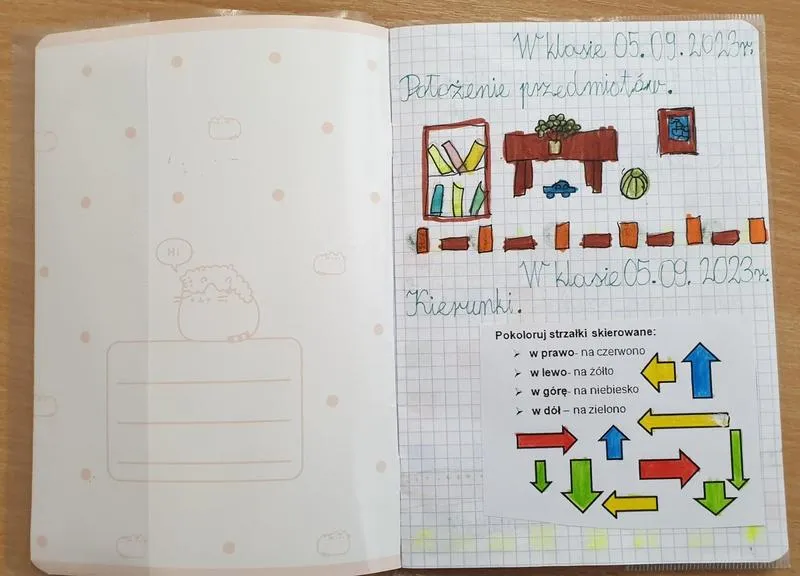 Hi
W klasie 05.09.2023r.
Położenie przedmiotów.
W klasie 05.09.2023r.
Kierunki.
Pokoloruj strzałki skierowane:
➢ w prawo- na czerwono
➢ w lewo- na żółto
➢ w górę- na niebiesko
➢ w dół – na zielono